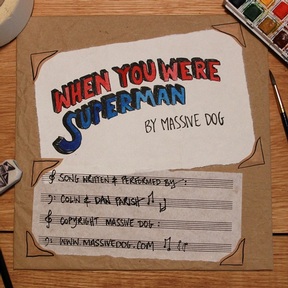 WHEN YOU WERE
SUPERMAN
BY MASSIVE DOG
SONG WRITTEN & PERFORMED BY :
COLIN & DAN PARISH
COPYRIGHT MASSIVE DOG :
WWW.MASSIVEDOG.COM